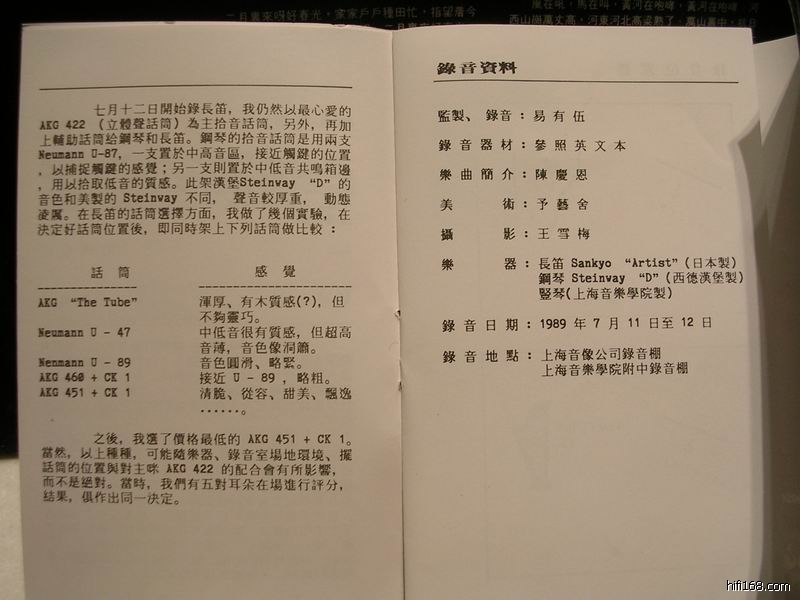 二月裏來呀好春光，家家戶戶種田忙，指望着今
風在吼，馬在叫，黃河在咆哮，黃河在咆哮，
西山崗萬丈高，河東河北高粱熟了，萬山叢中，
七月十二日開始錄長笛，我仍然以最心愛的
AKG 422 （立體聲話筒）為主拾音話筒，另外，再加
上輔助話筒給鋼琴和長笛。鋼琴的拾音話筒是用兩支
Neumann U-87，一支置於中高音區，接近觸鍵的位置
，以捕捉觸鍵的感覺；另一支則置於中低音共鳴箱邊
，用以拾取低音的質感。此架漢堡Steinway “D” 的
音色和美製的 Steinway 不同， 聲音較厚重， 動態
凌厲。在長笛的話筒選擇方面，我做了幾個實驗，在
決定好話筒位置後，即同時架上下列話筒做比較：
話 筒 感 覺
AKG “The Tube” 渾厚、有木質感(?)，但
不夠靈巧。
Neumann U - 47 中低音很有質感，但超高
音薄，音色像洞簫。
Nenmann U - 89 音色圓滑、略緊。
AKG 460 + CK 1 接近 U - 89 ，略粗。
AKG 451 + CK 1 清脆、從容、甜美、飄逸
......。
之後，我選了價格最低的 AKG 451 + CK 1。
當然，以上種種，可能隨樂器、錄音室場地環境、擺
話筒的位置與對主咪 AKG 422 的配合會有所影響，
而不是絕對。當時，我們有五對耳朵在場進行評分，
結果，俱作出同一決定。
錄音資料
監製、錄音：易有伍
錄音器材：參照英文本
樂曲簡介：陳慶恩
美 術：予藝舍
攝 影：王雪梅
樂 器：長笛 Sankyo “Artist” (日本製)
鋼琴 Steinway “D” (西德漢堡製)
豎琴(上海音樂學院製)
錄音日期：1989 年 7 月 11 日至 12 日
錄音地點：上海音像公司錄音棚
上海音樂學院附中錄音棚
hifi168.com